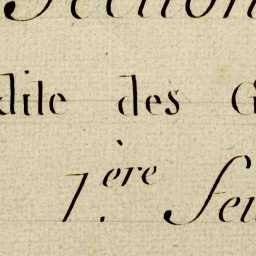 Section
dite des G
1.ère Feu